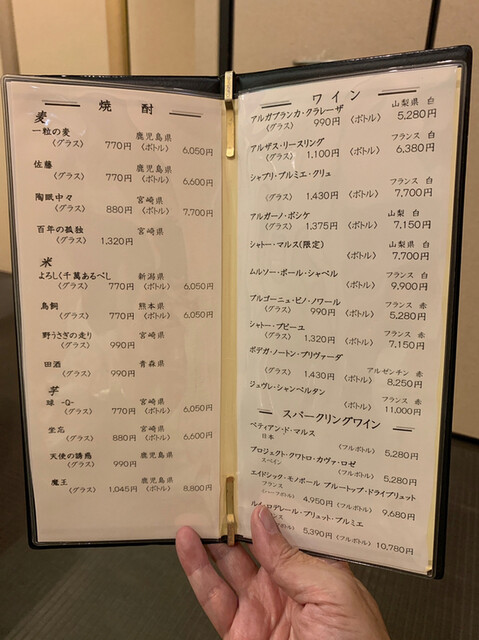 焼酎
麦
一粒の麦 鹿児島県
〈グラス〉 770円 〈ボトル〉 6,050円
佐藤 鹿児島県
〈グラス〉 770円 〈ボトル〉 6,600円
陶眠中々 宮崎県
〈グラス〉 880円 〈ボトル〉 7,700円
百年の孤独 宮崎県
〈グラス〉 1,320円
米
よろしく千萬あるべし 新潟県
〈グラス〉 770円 〈ボトル〉 6,050円
鳥飼 熊本県
〈グラス〉 770円 〈ボトル〉 6,050円
野うさぎの走り 宮崎県
〈グラス〉 990円
田酒 青森県
〈グラス〉 990円
芋
球 -Q- 宮崎県
〈グラス〉 770円 〈ボトル〉 6,050円
坐忘 宮崎県
〈グラス〉 880円 〈ボトル〉 6,600円
天使の誘惑 鹿児島県
〈グラス〉 990円
魔王 鹿児島県
〈グラス〉 1,045円 〈ボトル〉 8,800円
ワイン
アルガブランカ・クラレーザ 山梨県 白
〈グラス〉 990円 〈ボトル〉 5,280円
アルザス・リースリング フランス 白
〈グラス〉 1,100円 〈ボトル〉 6,380円
シャブリ・プルミエ・クリュ フランス 白
〈グラス〉 1,430円 〈ボトル〉 7,700円
アルガーノ・ボシケ 山梨 白
〈グラス〉 1,375円 〈ボトル〉 7,150円
シャトー・マルス(限定) 山梨県 白
〈ボトル〉 7,700円
ムルソー・ポール・シャペル フランス 白
〈ボトル〉 9,900円
ブルゴーニュ・ピノ・ノワール フランス 赤
〈グラス〉 990円 〈ボトル〉 5,280円
シャトー・プピーユ フランス 赤
〈グラス〉 1,320円 〈ボトル〉 7,150円
ボデガ・ノートン・プリヴァーダ アルゼンチン 赤
〈グラス〉 1,430円 〈ボトル〉 8,250円
ジュヴレ・シャンベルタン フランス 赤
〈ボトル〉 11,000円
スパークリングワイン
ペティアン・ド・マルス
日本 〈フルボトル〉 5,280円
プロジェクト・クワトロ・カヴァ・ロゼ
スペイン 〈フルボトル〉 5,280円
エイドシック・モノポール ブルートップ・ドライブリュット
フランス
〈ハーフボトル〉 4,950円 〈フルボトル〉 9,680円
ルイ・ロデレール・ブリュット・プルミエ
5,390円 〈フルボトル〉 10,780円